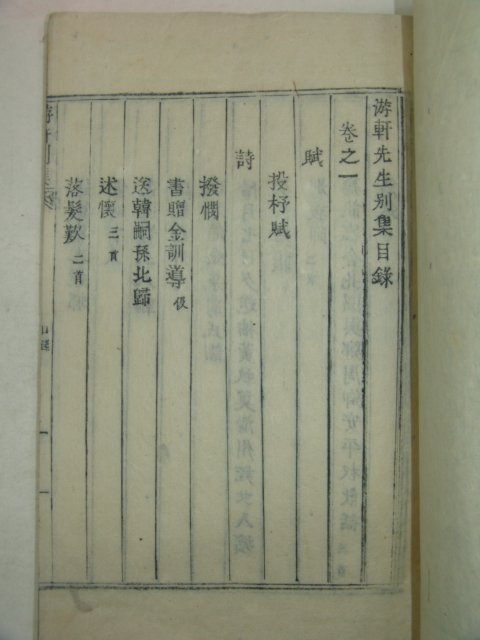 游軒先生別集目錄
卷之一
賦
投杼賦
詩
撥憫
書贈金訓導伋
送韓嗣孫北歸
述懷三首
落髮歎二首